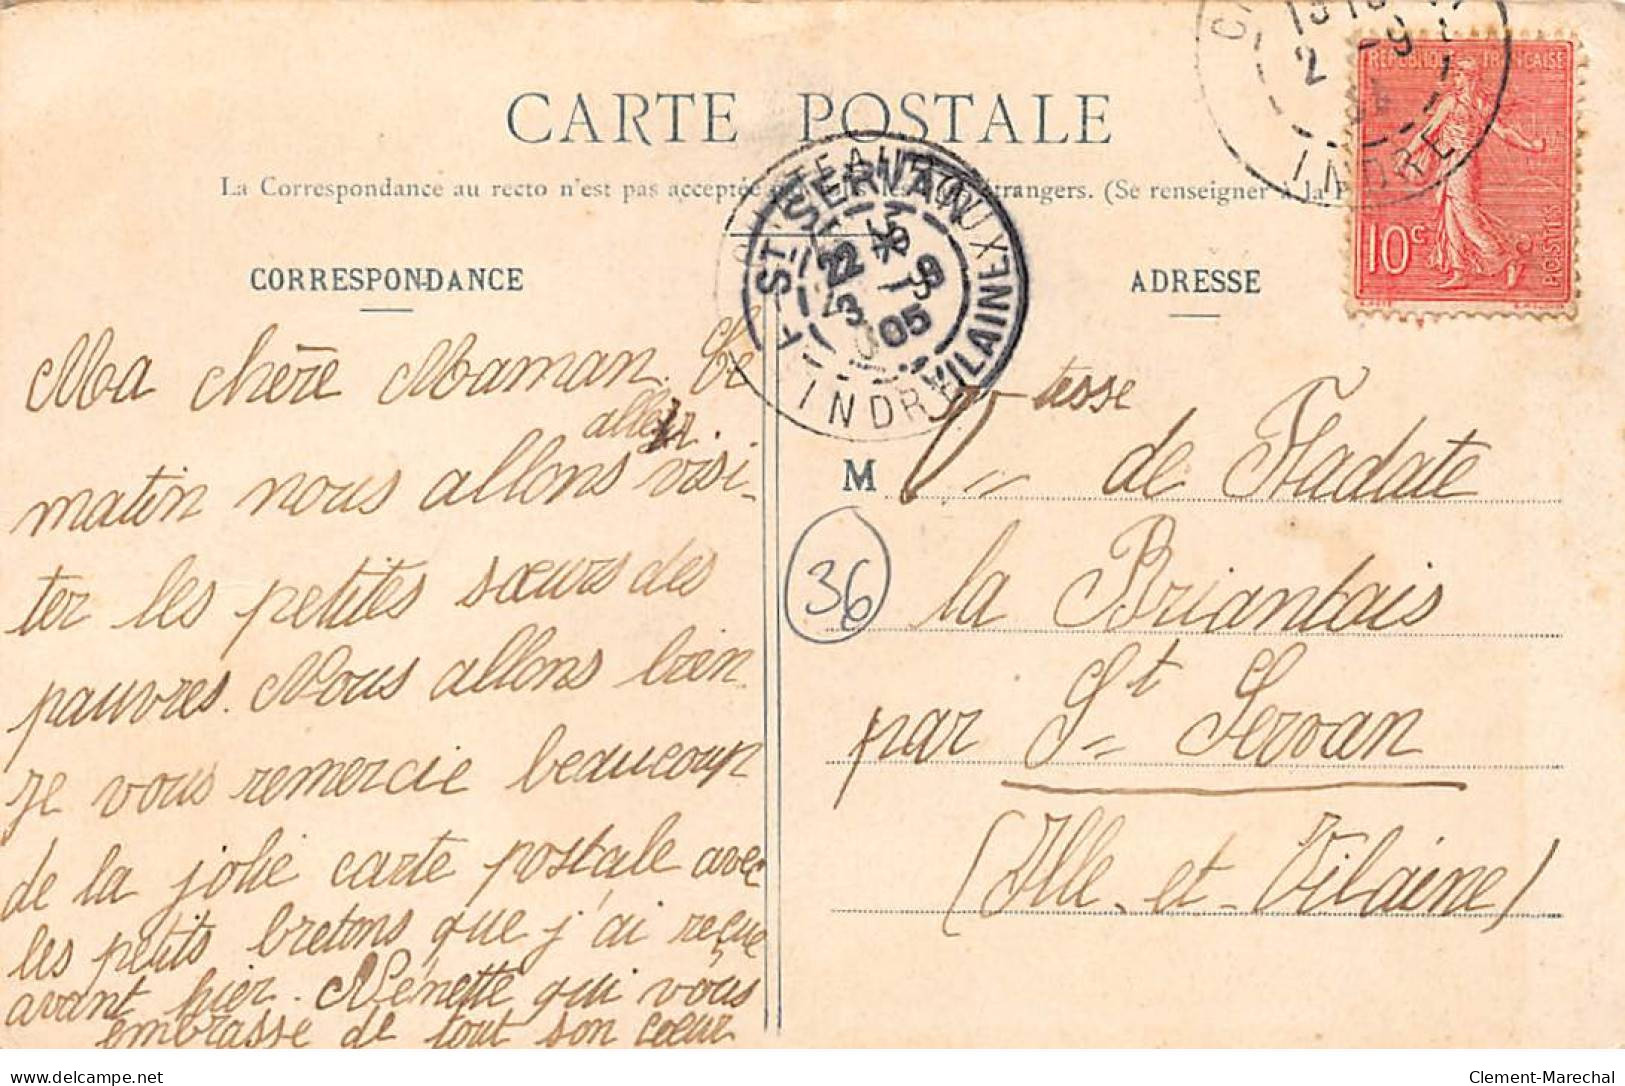 CARTE POSTALE
La Correspondance au recto n'est pas acceptée par tous les pays étrangers. (Se renseigner à la P
CORRESPONDANCE
ADRESSE
RÉPUBLIQUE FRANÇAISE
10c
POSTES
INDRE
2 -9
CHATEAUROUX
INDRE
ST SERVAN
ILLE-ET-VILAINE
22
3 -9
05
Ma chère Maman. Ce
aller
matin nous allons visi-
ter les petites sœurs des
pauvres. Nous allons bien
je vous remercie beaucoup
de la jolie carte postale avec
les petits bretons que j'ai reçue
avant hier. Nénette qui vous
embrasse de tout son cœur
M Vtesse
de Fladate
la Briantais
par St Servan
(Ille-et-Vilaine)
36
Clement-Marechal